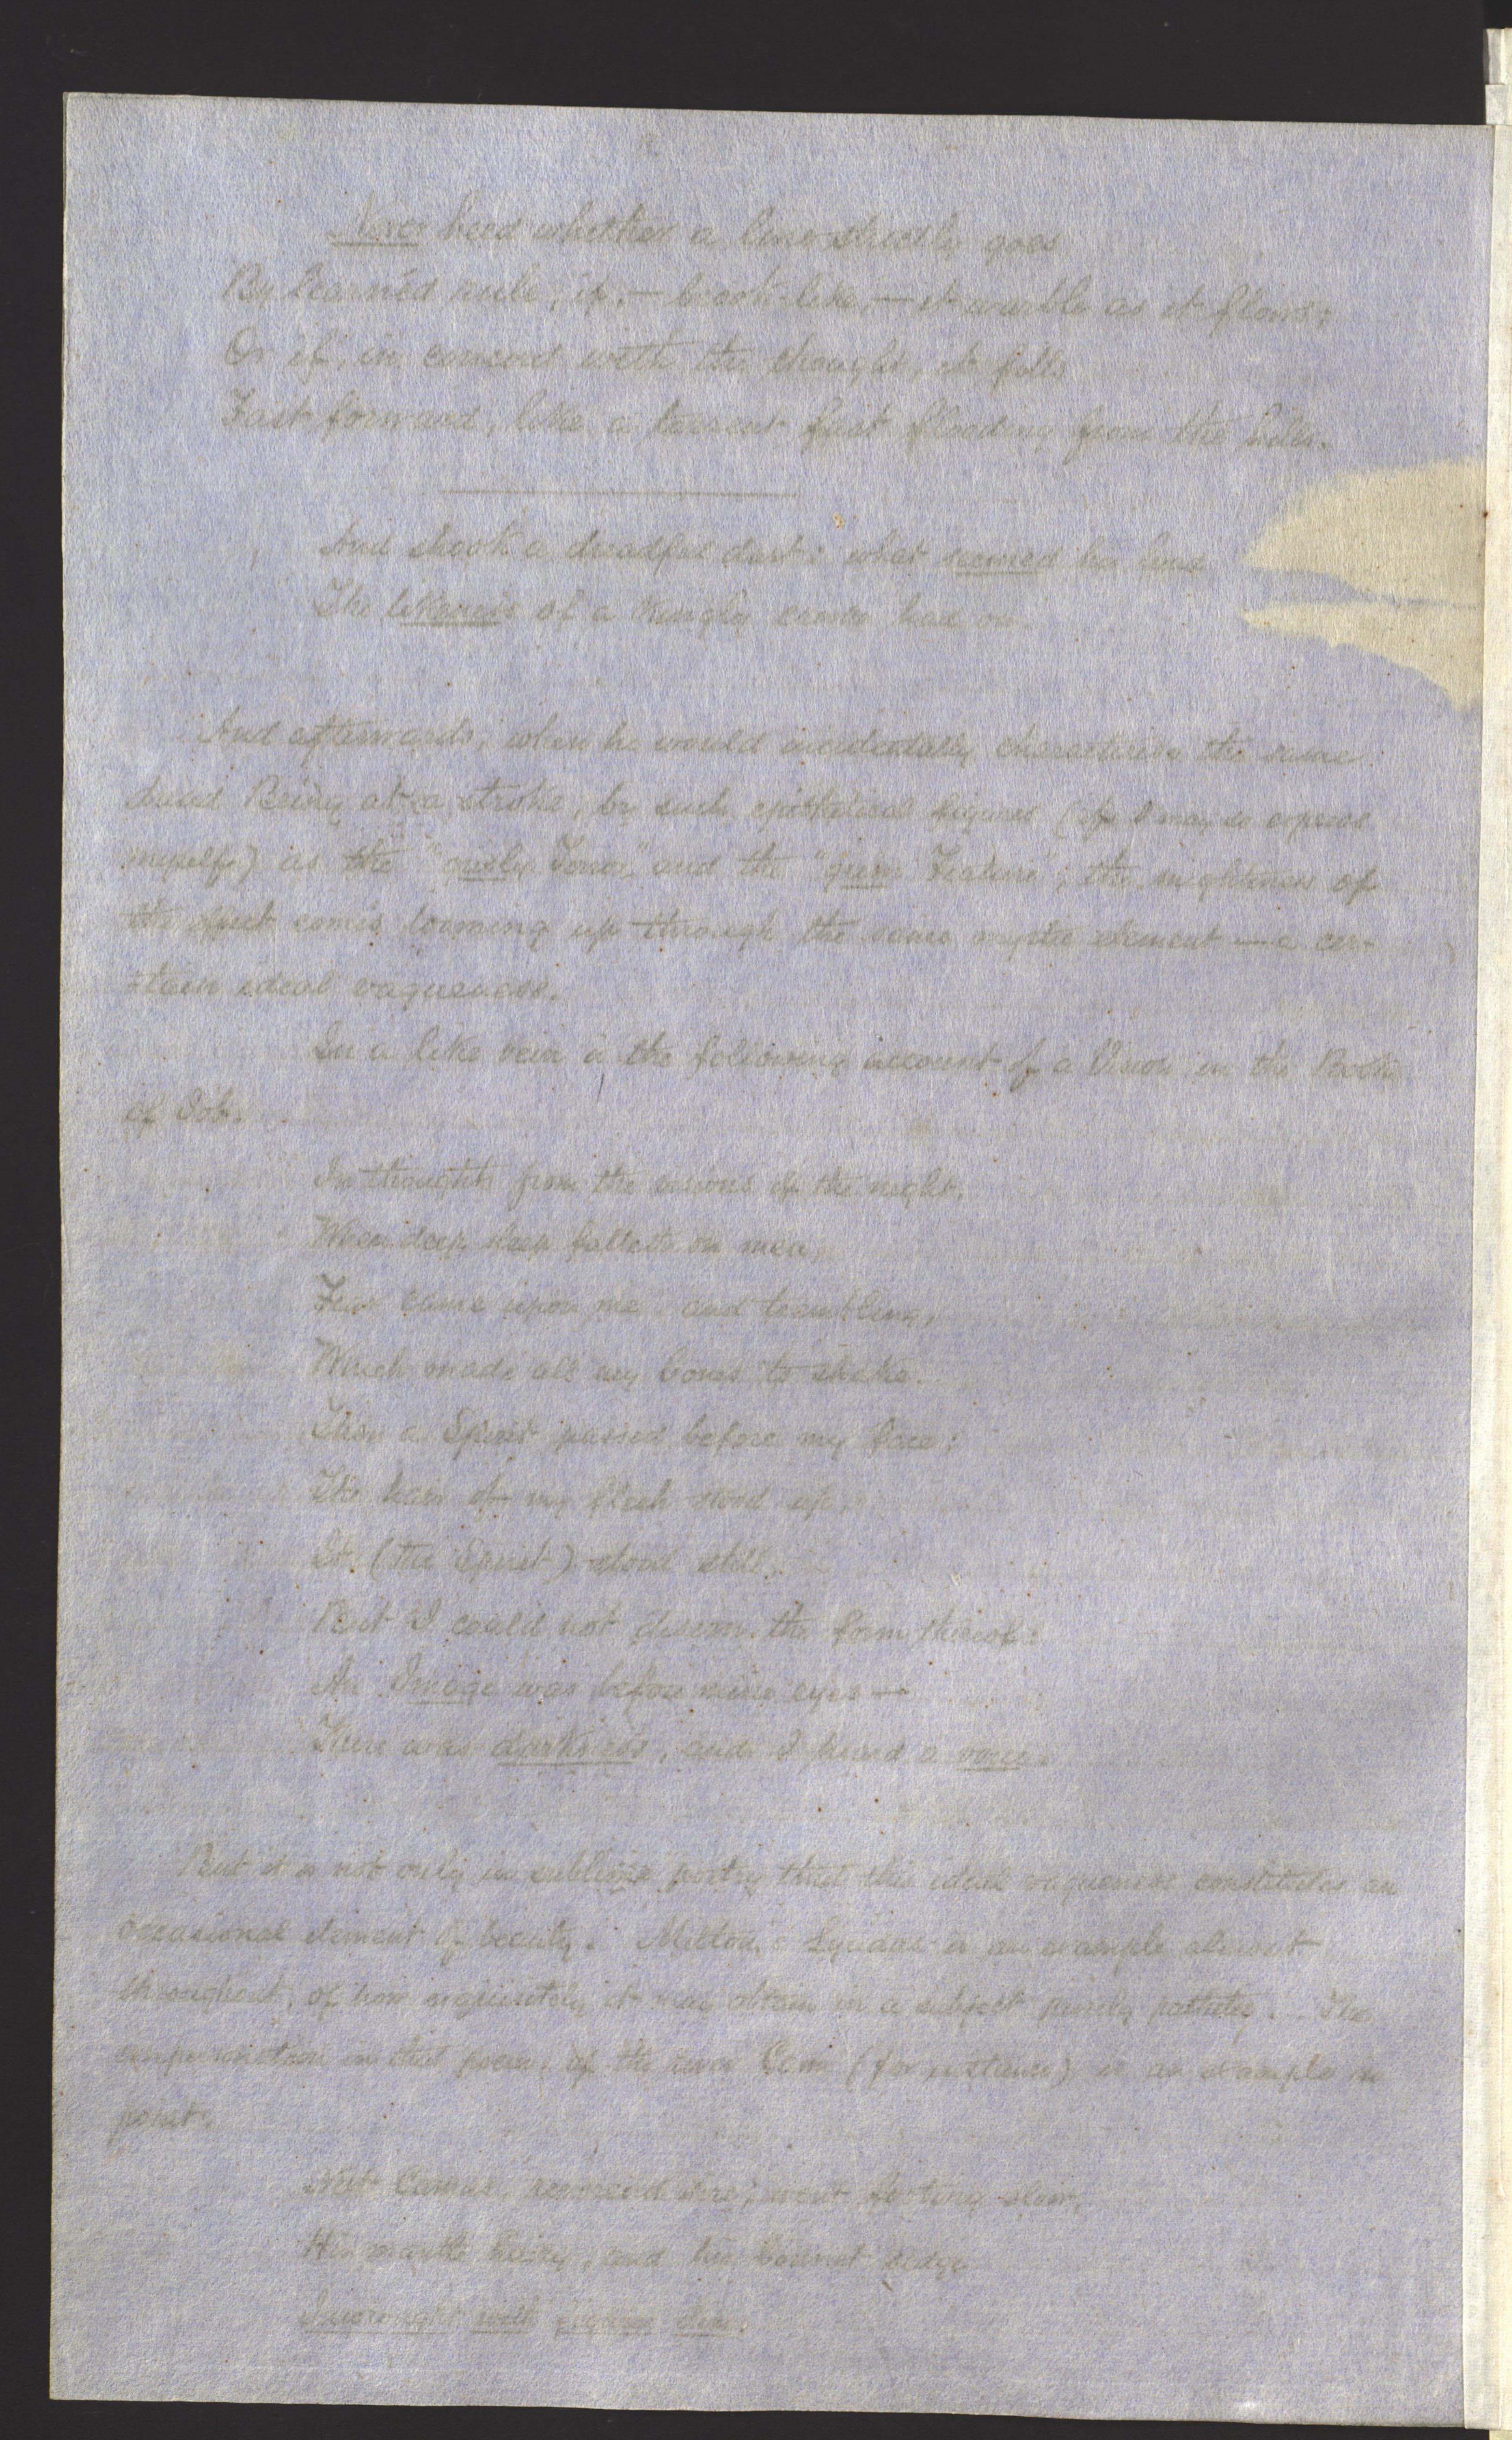 Never heed whether a line strictly goes
By learnéd rule, if, — brook-like, — it warble as it flows;
Or if, in concord with the thought, it fills
Fast forward, like a torrent fast flooding from the hills.
And shook a dreadful dart: what seemed his head
The likeness of a kingly crown had on.
And afterwards, when he would incidentally characterise the same
dread Being at a stroke, by such epithetical figures (if I may so express
myself) as the "grisly Terror" and the "grim Feature"; the mightiness of
the effect comes looming up through the same mystic element — a cer-
-tain ideal vagueness.
In a like vein is the following account of a Vision in the Book
of Job.
In thoughts from the visions of the night,
When deep sleep falleth on men,
Fear came upon me, and trembling,
Which made all my bones to shake.
Then a Spirit passed before my face;
The hair of my flesh stood up.
It (the Spirit) stood still,
But I could not discern the form thereof:
An Image was before mine eyes —
There was darkness, and I heard a voice.
But it is not only in sublime poetry that this ideal vagueness constitutes an
occasional element of beauty. Milton's Lycidas is an example almost
throughout, of how exquisitely it may obtain in a subject purely pathetic. The
impersonation in that poem, of the river Cam (for instance) is an example in
point.
Next Camus, reverend sire, went footing slow,
His mantle hairy, and his bonnet sedge
Inwrought with figures dim.